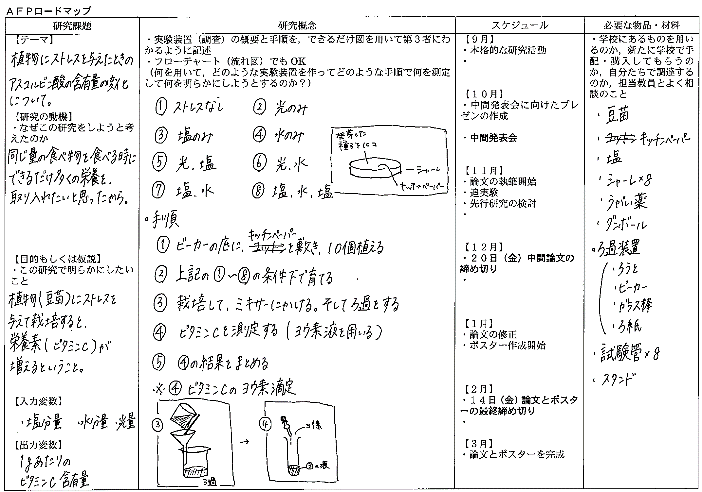 AFPロードマップ
研究課題
【テーマ】
植物にストレスを与えたときの
アスコルビン酸の含有量の変化
について。
【研究の動機】
・なぜこの研究をしようと考
えたのか
同じ量の食べ物を食べる時に
できるだけ多くの栄養を、
取り入れたいと思ったから。
【目的もしくは仮説】
・この研究で明らかにしたい
こと
植物(豆苗)にストレスを
与えて栽培すると、
栄養素(ビタミンC)が
増えるということ。
【入力変数】
・塩分量 水分量 光量
【出力変数】
1gあたりの
ビタミンC含有量
研究概念
・実験装置(調査)の概要と手順を、できるだけ図を用いて第3者にわ
かるように記述
・フローチャート(流れ図)でもOK
(何を用いて、どのような実験装置を作ってどのような手順で何を測定
して何を明らかにしようとするのか?)
① ストレスなし ② 光のみ
③ 塩のみ ④ 水のみ
⑤ 光、塩 ⑥ 光、水
⑦ 塩、水 ⑧ 光、水、塩
シャーレ
キッチンペーパー
・手順
① ビーカーの底に、キッチンペーパーを敷き、10個植える
② 上記の①〜⑧の条件下で育てる
③ 栽培して、ミキサーにかける。そしてろ過をする
④ ビタミンCを測定する(ヨウ素液を用いる)
⑤ ④の結果をまとめる
※④ ビタミンCのヨウ素滴定
③
ろ過
④
③の液
スケジュール
【9月】
・本格的な研究活動
・
【10月】
・中間発表会に向けたプレ
ゼンの作成
・中間発表会
【11月】
・論文の執筆開始
・追実験
・先行研究の検討
・
【12月】
・20日(金)中間論文の
締め切り
・
【1月】
・論文の修正
・ポスター作成開始
【2月】
・14日(金)論文とポスタ
ーの最終締め切り
【3月】
・論文とポスターを完成
必要な物品・材料
・学校にあるものを用い
るのか、新たに学校で手
配・購入してもらうの
か、自分たちで調達する
のか、担当教員とよく相
談のこと
・豆苗
・キッチンペーパー
・塩
・シャーレ×8
・うがい薬
・ダンボール
・ろ過装置
・ろうと
・ビーカー
・ガラス棒
・ろ紙
・試験管×8
・スタンド